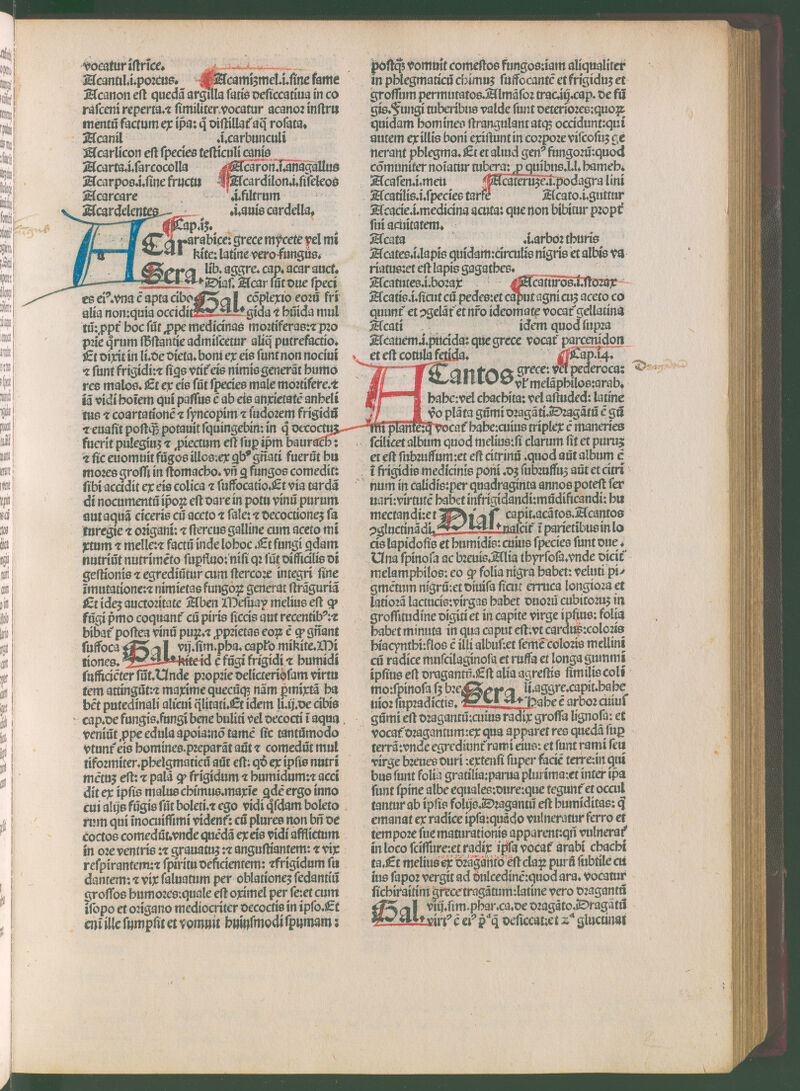 vocatur istrice.
Acantil.i.porcus. Acamizmel.i.sine fame
Acanon est quedā argilla satis desiccatiua in co
rasceni reperta.⁊ similiter vocatur acanoz instru
mentū factum ex ipa: q̄ distillat᷑ aq̄ rosata.
Acanil .i.carbunculi
Acarlicon est species testiculi canis
Acarta.i.sarcocolla Acaron.i.anagallus
Acarpos.i.sine fructu Acardilon.i.siseleos
Acarcare .i.filtrum
Acardelentes .i.auis cardella.
Cap.i3.
ACar arabice: grece mycete vel mi
kite: latine vero fungus.
Sera. lib. aggre. cap. acar auct.
Dias. Acar sūt due speci
es eiꝰ.vna ē apta cibo Gal. cōplexio eorū fri
alia non:quia occidit gida ⁊ hūida mul
tū:ꝓpt᷑ hoc sūt ꝓpe medicinas mortiferas:⁊ pro
prie q̄rum sb̄stantie admiscetur aliq̄ putrefactio.
Et dixit in li.de dieta. boni ex eis sunt non nociui
⁊ sunt frigidi:⁊ siqs vtit᷑ eis nimis generāt humo
res malos. Et ex eis sūt species male mortifere.⁊
iā vidi hoīem qui passus ē ab eis anxietatē anheli
tus ⁊ coartationē ⁊ syncopim ⁊ sudorem frigidū
⁊ euasit postq̄ꝫ potauit squingebin: in q̄ decoctuꝫ
fuerit pulegiuꝫ ⁊ ꝓiectum est sup ipm baurach:
⁊ sic euomuit fūgos illos:ex qbꝰ gn̄ati fuerūt hu
mores grossi in stomacho. vn̄ q̄ fungos comedit:
sibi accidit ex eis colica ⁊ suffocatio.Et via tardā
di nocumentū ipoꝝ est dare in potu vinū purum
aut aquā ciceris cū aceto ⁊ sale: ⁊ decoctioneꝫ sa
turegie ⁊ origani: ⁊ stercus galline cum aceto mi
xtum ⁊ melle:⁊ factū inde lohoc .Et fungi qdam
nutriūt nutrimēto supfluo: nisi qꝛ sūt difficilis di
gestionis ⁊ egrediūtur cum stercore integri sine
īmutatione:⁊ nimietas fungoꝝ generat strāguriā
Et ideꝫ auctoritate Aben Mesuay melius est ꝙ
fūgi p̄mo coquant᷑ cū piris siccis aut recentibꝰ:⁊
bibat᷑ postea vinū puꝝ.⁊ ꝓprietas eoꝝ ē ꝙ gn̄ant
suffoca Gal. vij.sim.pha. caplo mikite. Mi
tiones. kite id ē fūgi frigidi ⁊ humidi
sufficiēter sūt.Unde proprie delicteriosam virtu
tem attingūt:⁊ maxime quecūqꝫ nām p̄mixtā ha
bēt putedinali alicui qlitati.Et idem li.ij.de cibis
cap.de fungis.fungi bene buliti vel decocti i aqua
veniūt ꝓpe edula apoia:nō tamē sic tantūmodo
vtunt᷑ eis homines.preparāt aūt ⁊ comedūt mul
tiformiter.phelgmaticū aūt est: qđ ex ipsis nutri
mētuꝫ est: ⁊ palā ꝙ frigidum ⁊ humidum:⁊ acci
dit ex ipsis malus chimus.maxīe qdē ergo inno
cui alijs fūgis sūt boleti.⁊ ego vidi qsdam boleto
rum qui inocuissimi vident᷑: cū plures non bn̄ de
coctos comedūt.vnde quēdā ex eis vidi afflictum
in ore ventris :⁊ grauatuꝫ :⁊ angustiantem: ⁊ vix
respirantem:⁊ spiritu deficientem: ⁊frigidum su
dantem: ⁊ vix saluatum per oblationeꝫ sedantiū
grossos humores:quale est oximel per se:et cum
isopo et origano mediocriter decoctis in ipso.Et
eni ille sumpsit et vomuit huiusmodi spumam :
postq̄ꝫ vomuit comestos fungos:iam aliqualiter
in phlegmaticū chimuꝫ suffocantē et frigiduꝫ et
grossum permutatos.Almāsoꝛ trac.iij.cap. de fū
gis.Fungi tuberibus valde sunt deteriores:quoꝝ
quidam homines strangulant atqꝫ occidunt:qui
autem ex illis boni existunt in corpore viscosuꝫ ge
nerant phlegma. Et et aliud genꝰ fungorū:quod
cōmuniter noīatur tubera: ꝓ quibus.l.l. hameh.
Acasen.i.meu Acateruze.i.podagra lini
Acatilis.i.species tarse Acato.i.guttur
Acacie.i.medicina acuta: que non bibitur propt᷑
sui acuitatem.
Acata .i.arbor thuris
Acates.i.lapis quidam:circulis nigris et albis va
riatus:et est lapis gagathes.
Acatutes.i.borax Acaturos.i.storax
Acatis.i.sicut cū pedes:et caput agni cuꝫ aceto co
quunt᷑ et ꝯgelāt᷑ et nr̄o ideomate vocat᷑ gellatina
Acati idem quod supra
Acauem.i.pucida: que grece vocat᷑ parcenidon
et est cotula fetida. Cap.i4.
ACantos grece: vel pederoca:
vl᷑ melāphilos:arab.
habe:vel chachita: vel astuded: latine
v̄o plāta gūmi dragāti.Dragātū ē gū
mi plante:q̄ vocat᷑ habe:cuius triplex ē maneries
scilicet album quod melius:si clarum sit et puruꝫ
et est subrussum:et est citrinū .quod aūt album ē
ī frigidis medicinis poni .dꝫ subrussuꝫ aūt et citri
num in calidis:per quadraginta annos potest ser
uari:virtutē habet infrigidandi:mūdificandi: hu
mectandi:et Dias. capit.acātos.Acantos
ꝯgluctinādi. nascit᷑ ī parietibus in lo
cis lapidosis et humidis: cuius species sunt due .
Una spinosa ac breuis.Alia thyrsosa.vnde dicit᷑
melamphilos: eo ꝙ folia nigra habet: veluti pi-
gmētum nigrū:et diuisa sicut erruca longiora et
latiorā lactucis:virgas habet duorū cubitoruꝫ in
grossitudine digiti et in capite virge ipsius: folia
habet minuta in qua caput est:vt cardus:coloris
hiacynthi:flos ē illi albus:et semē coloris mellini
cū radice muscilaginosa et russa et longa gummi
ipsius est dragantū.Est alia agrestis similis coli
mo:spinosa sꝫ bre Sera. li.aggre.capit.habe
uior supradictis. Habe ē arbor cuius
gūmi est dragantū:cuius radix grossa lignosa: et
vocat᷑ dragantum:ex qua apparet res quedā sup
terrā:vnde egrediunt᷑ rami eius: et sunt rami seu
virge breues duri :extensi super faciē terre:in qui
bus sunt folia gratilia:parua plurima:et inter ipa
sunt spine albe equales:dure:que tegunt᷑ et occul
tantur ab ipsis folijs.Dragantū est humiditas: q̄
emanat ex radice ipsa:quādo vulneratur ferro et
tempore sue maturationis apparent:qn̄ vulnerat᷑
in loco scissure:et radix ipsa vocat᷑ arabi chachi
ta.Et melius ex draganto est claꝝ purū subtile cu
ius sapor vergit ad dulcedinē:quod ara. vocatur
sichiraitim grece tragātum:latine vero dragantū
Gal. viij.sim.phar.ca.de dragāto.Dragātū
virtꝰ ē eiꝰ p̄ꝰ q̄ desiccat:et zᵃ glucinat